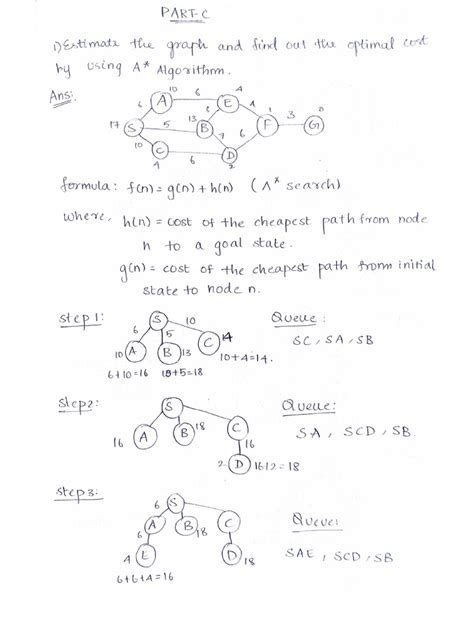 PART-C
1) Estimate the graph and find out the optimal cost
by using A* Algorithm.
Ans:
10 6 4
A E
6 8 4 1 3 0
17 S 5 13 B F G
10 7 6
C 6 D
4 2
formula: f(n) = g(n) + h(n) (A* search)
where, h(n) = cost of the cheapest path from node
n to a goal state.
g(n) = cost of the cheapest path from initial
state to node n.
step 1: S 10 Queue:
6 5
10 A B 13 C 14 SC, SA, SB
6+10=16 13+5=18 10+4=14.
Step2: S Queue:
16 A B 18 C SA, SCD, SB
16
2 D 16+2=18
step3: 6 S
A B 18 C Queue:
6
4 E D 18 SAE, SCD, SB
6+6+4=16